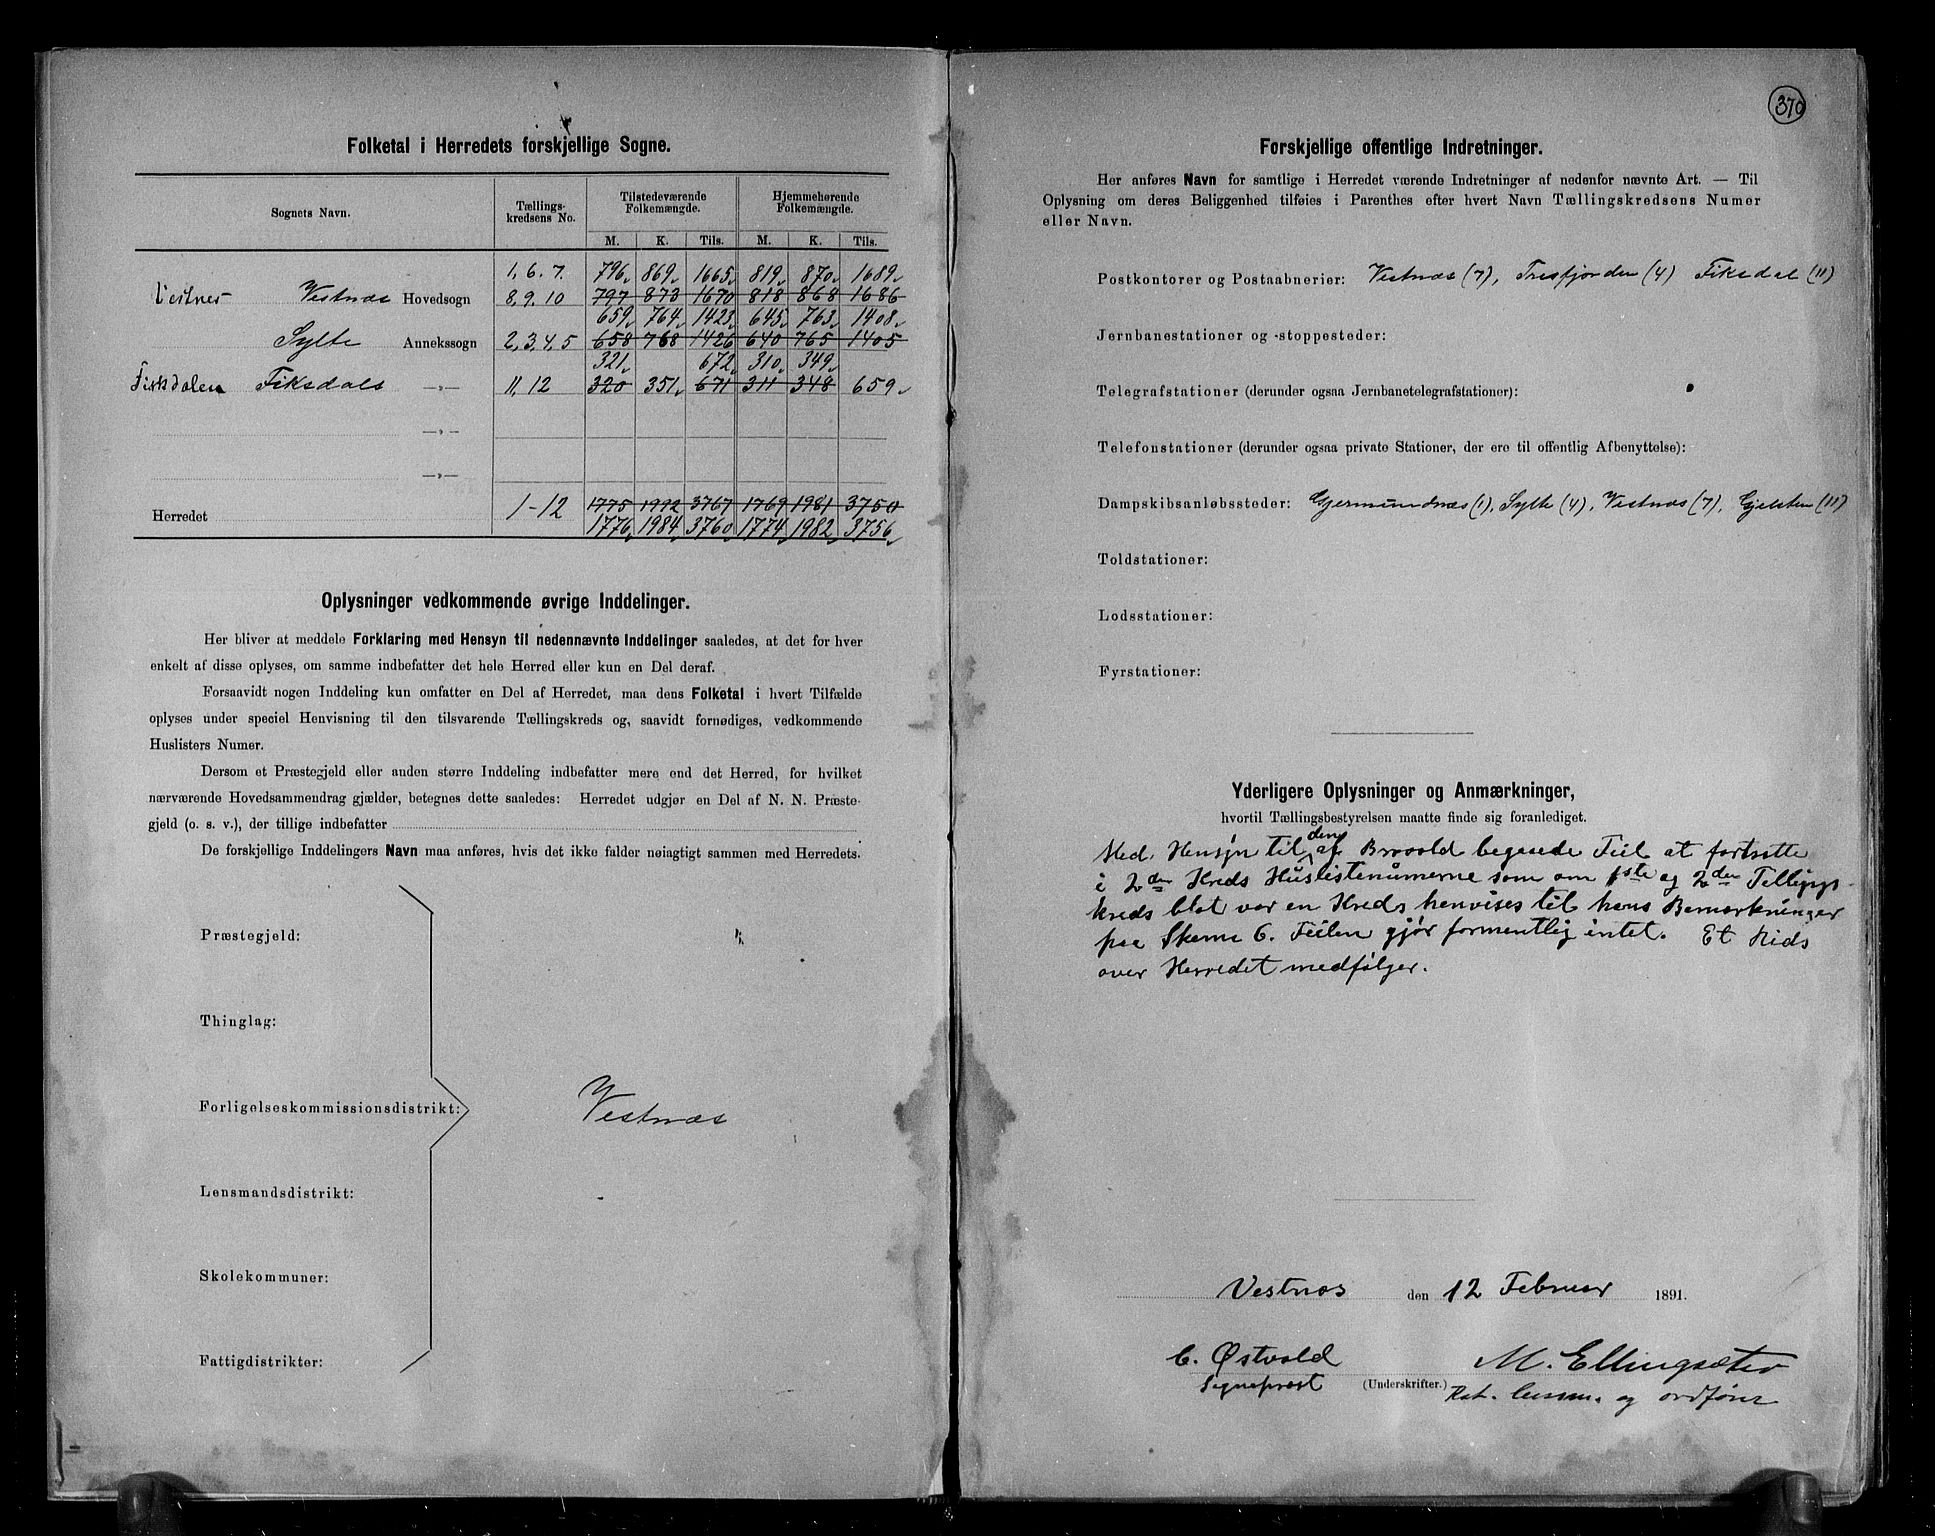 Folketal i Herredets forskjellige Sogne.
Sognets Navn. Tællings-kredsens No. Tilstedeværende Folkemængde. Hjemmehørende Folkemængde.
M. K. Tils. M. K. Tils.
1, 6. 7. 796 869 1665 819 870 1689
Vestnes Vestnæs Hovedsogn 8, 9. 10 797 873 1670 818 868 1686
659 764 1423 645 763 1408
Sylte Annekssogn 2, 3, 4, 5 658 768 1426 640 765 1405
321 672 310 349
Fiksdalen Fiksdals —„— 11, 12 320 351 671 311 348 659
—„—
—„—
1-12 1775 1992 3767 1769 1981 3750
Herredet
1776 1984 3760 1774 1982 3756
Oplysninger vedkommende øvrige Inddelinger.
Her bliver at meddele Forklaring med Hensyn til nedennævnte Inddelinger saaledes, at det for hver
enkelt af disse oplyses, om samme indbefatter det hele Herred eller kun en Del deraf.
Forsaavidt nogen Inddeling kun omfatter en Del af Herredet, maa dens Folketal i hvert Tilfælde
oplyses under speciel Henvisning til den tilsvarende Tællingskreds og, saavidt fornødiges, vedkommende
Huslisters Numer.
Dersom et Præstegjeld eller anden større Inddeling indbefatter mere end det Herred, for hvilket
nærværende Hovedsammendrag gjælder, betegnes dette saaledes: Herredet udgjør en Del af N. N. Præste-
gjeld (o. s. v.), der tillige indbefatter
De forskjellige Inddelingers Navn maa anføres, hvis det ikke falder nøiagtigt sammen med Herredets.
Præstegjeld:
Thinglag:
Forligelseskommissionsdistrikt: Vestnæs
Lensmandsdistrikt:
Skolekommuner:
Fattigdistrikter:
370
Forskjellige offentlige Indretninger.
Her anføres Navn for samtlige i Herredet værende Indretninger af nedenfor nævnte Art. — Til
Oplysning om deres Beliggenhed tilføies i Parenthes efter hvert Navn Tællingskredsens Numer
eller Navn.
Postkontorer og Postaabnerier: Vestnæs (7), Tresfjorden (4) Fiksdal (11)
Jernbanestationer og -stoppesteder:
Telegrafstationer (derunder ogsaa Jernbanetelegrafstationer):
Telefonstationer (derunder ogsaa private Stationer, der ere til offentlig Afbenyttelse):
Dampskibsanløbssteder: Gjermundnæs (1), Sylte (4), Vestnæs (7), Gjelsten (11)
Toldstationer:
Lodsstationer:
Fyrstationer:
Yderligere Oplysninger og Anmærkninger,
hvortil Tællingsbestyrelsen maatte finde sig foranlediget.
Med Hensyn til den af Brovold begaaede Feil at fortsætte
i 2den Kreds Huslistenumerne som om 1ste og 2den Tellings-
kreds blot var en Kreds henvises til hans Bemærkninger
paa Skema 6. Feilen gjør formentlig intet. Et Rids
over Herredet medfølger.
Vestnæs den 12 Februar 1891.
C. Østvold M. Ellingsæter
Sognepræst (Underskrifter.) og ordfører